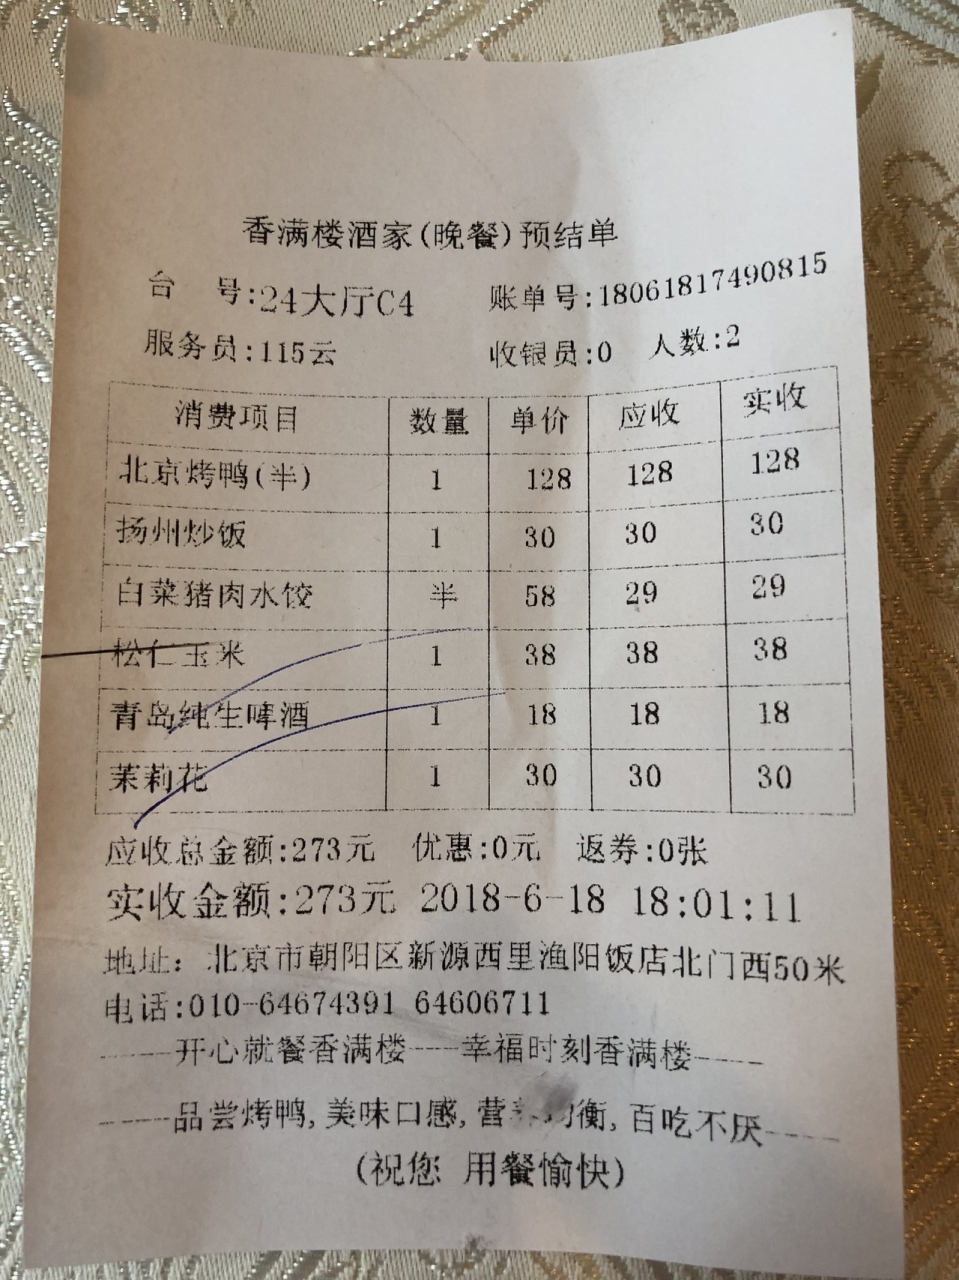 香满楼酒家(晚餐)预结单
台 号:24大厅C4 账单号:18061817490815
服务员:115云 收银员:0 人数:2
消费项目 数量 单价 应收 实收
北京烤鸭(半) 1 128 128 128
扬州炒饭 1 30 30 30
白菜猪肉水饺 半 58 29 29
松仁玉米 1 38 38 38
青岛纯生啤酒 1 18 18 18
茉莉花 1 30 30 30
应收总金额:273元 优惠:0元 返券:0张
实收金额:273元 2018-6-18 18:01:11
地址: 北京市朝阳区新源西里渔阳饭店北门西50米
电话:010-64674391 64606711
-----开心就餐香满楼----幸福时刻香满楼-----
-----品尝烤鸭,美味口感,营 衡,百吃不厌-----
(祝您 用餐愉快)